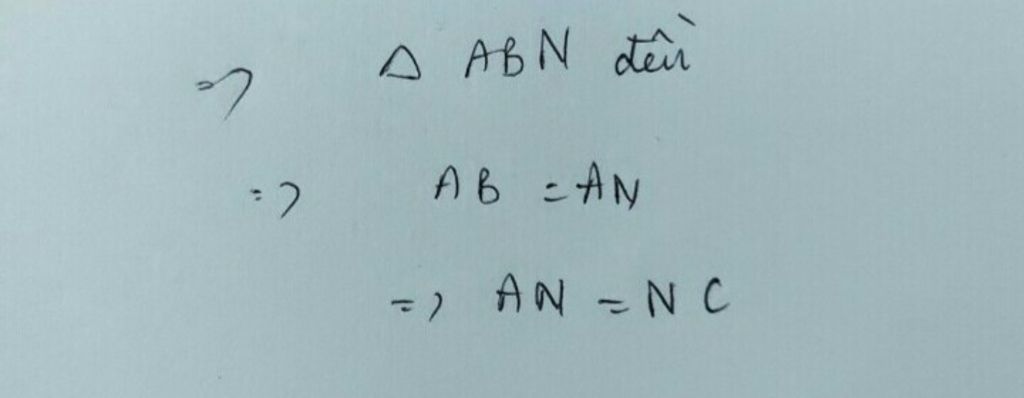 => Δ ABN đều
=> AB = AN
=> AN = NC